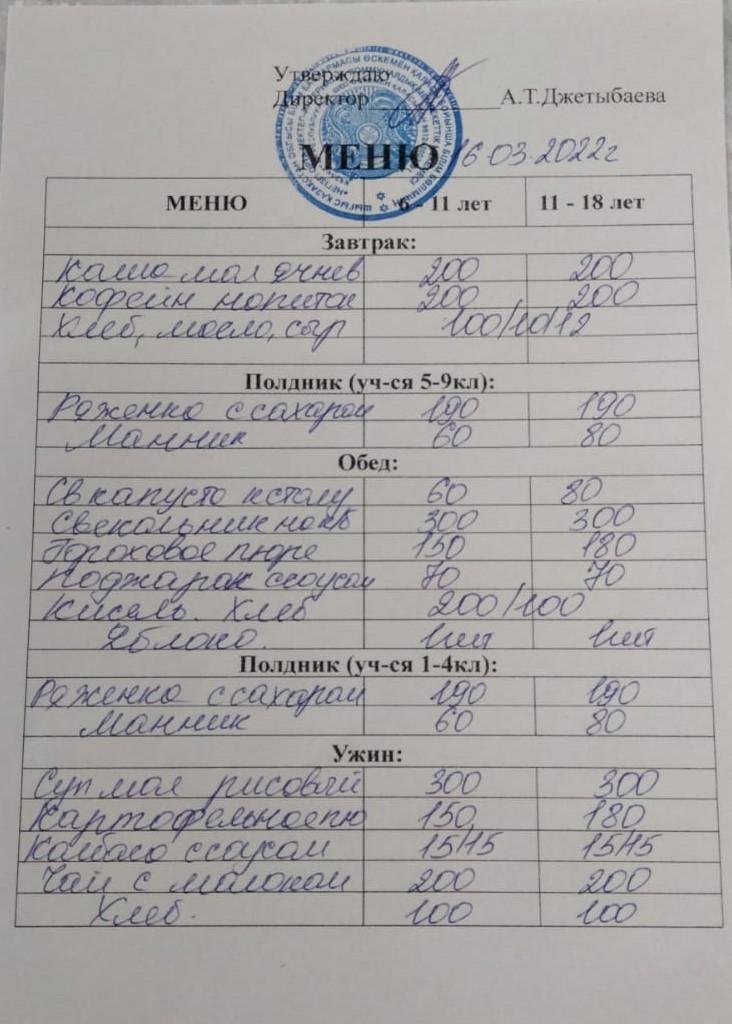 Утверждаю
Директор А.Т.Джетыбаева
МЕНЮ 16.03.2022г
МЕНЮ 6 - 11 лет 11 - 18 лет
Завтрак:
Каша мол ячнев 200 200
Кофейн напиток 200 200
Хлеб, масло, сыр 100/10/12
Полдник (уч-ся 5-9кл):
Ряженка с сахаром 190 190
Манник 60 80
Обед:
Св капуста к столу 60 80
Свекольник на кб 300 300
Гороховое пюре 150 180
Поджарак с соусом 70 70
Кисель. Хлеб 200/100
Яблоко. 1шт 1шт
Полдник (уч-ся 1-4кл):
Ряженка с сахаром 190 190
Манник 60 80
Ужин:
Суп мол рисовый 300 300
Картофельное пю 150 180
Колбаса с соусом
Чай с молоком 200 200
Хлеб. 100 100